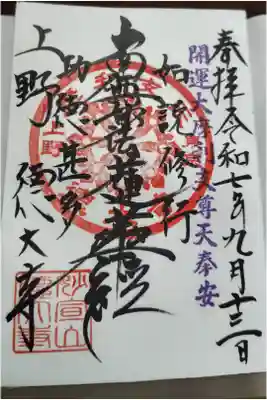 奉拝令和七年九月十三日
開運大摩利支尊天奉安
如説修行
南無妙法蓮華経
功徳甚多
上野 徳大寺
妙宣山
徳大寺